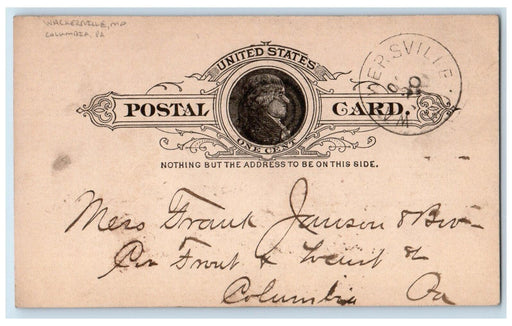 WALKERSVILLE, MD
COLUMBIA, PA
UNITED STATES
POSTAL CARD.
ONE CENT
NOTHING BUT THE ADDRESS TO BE ON THIS SIDE.
Mess Frank Janson & Bro
Cor Front & Locust St
Columbia Pa